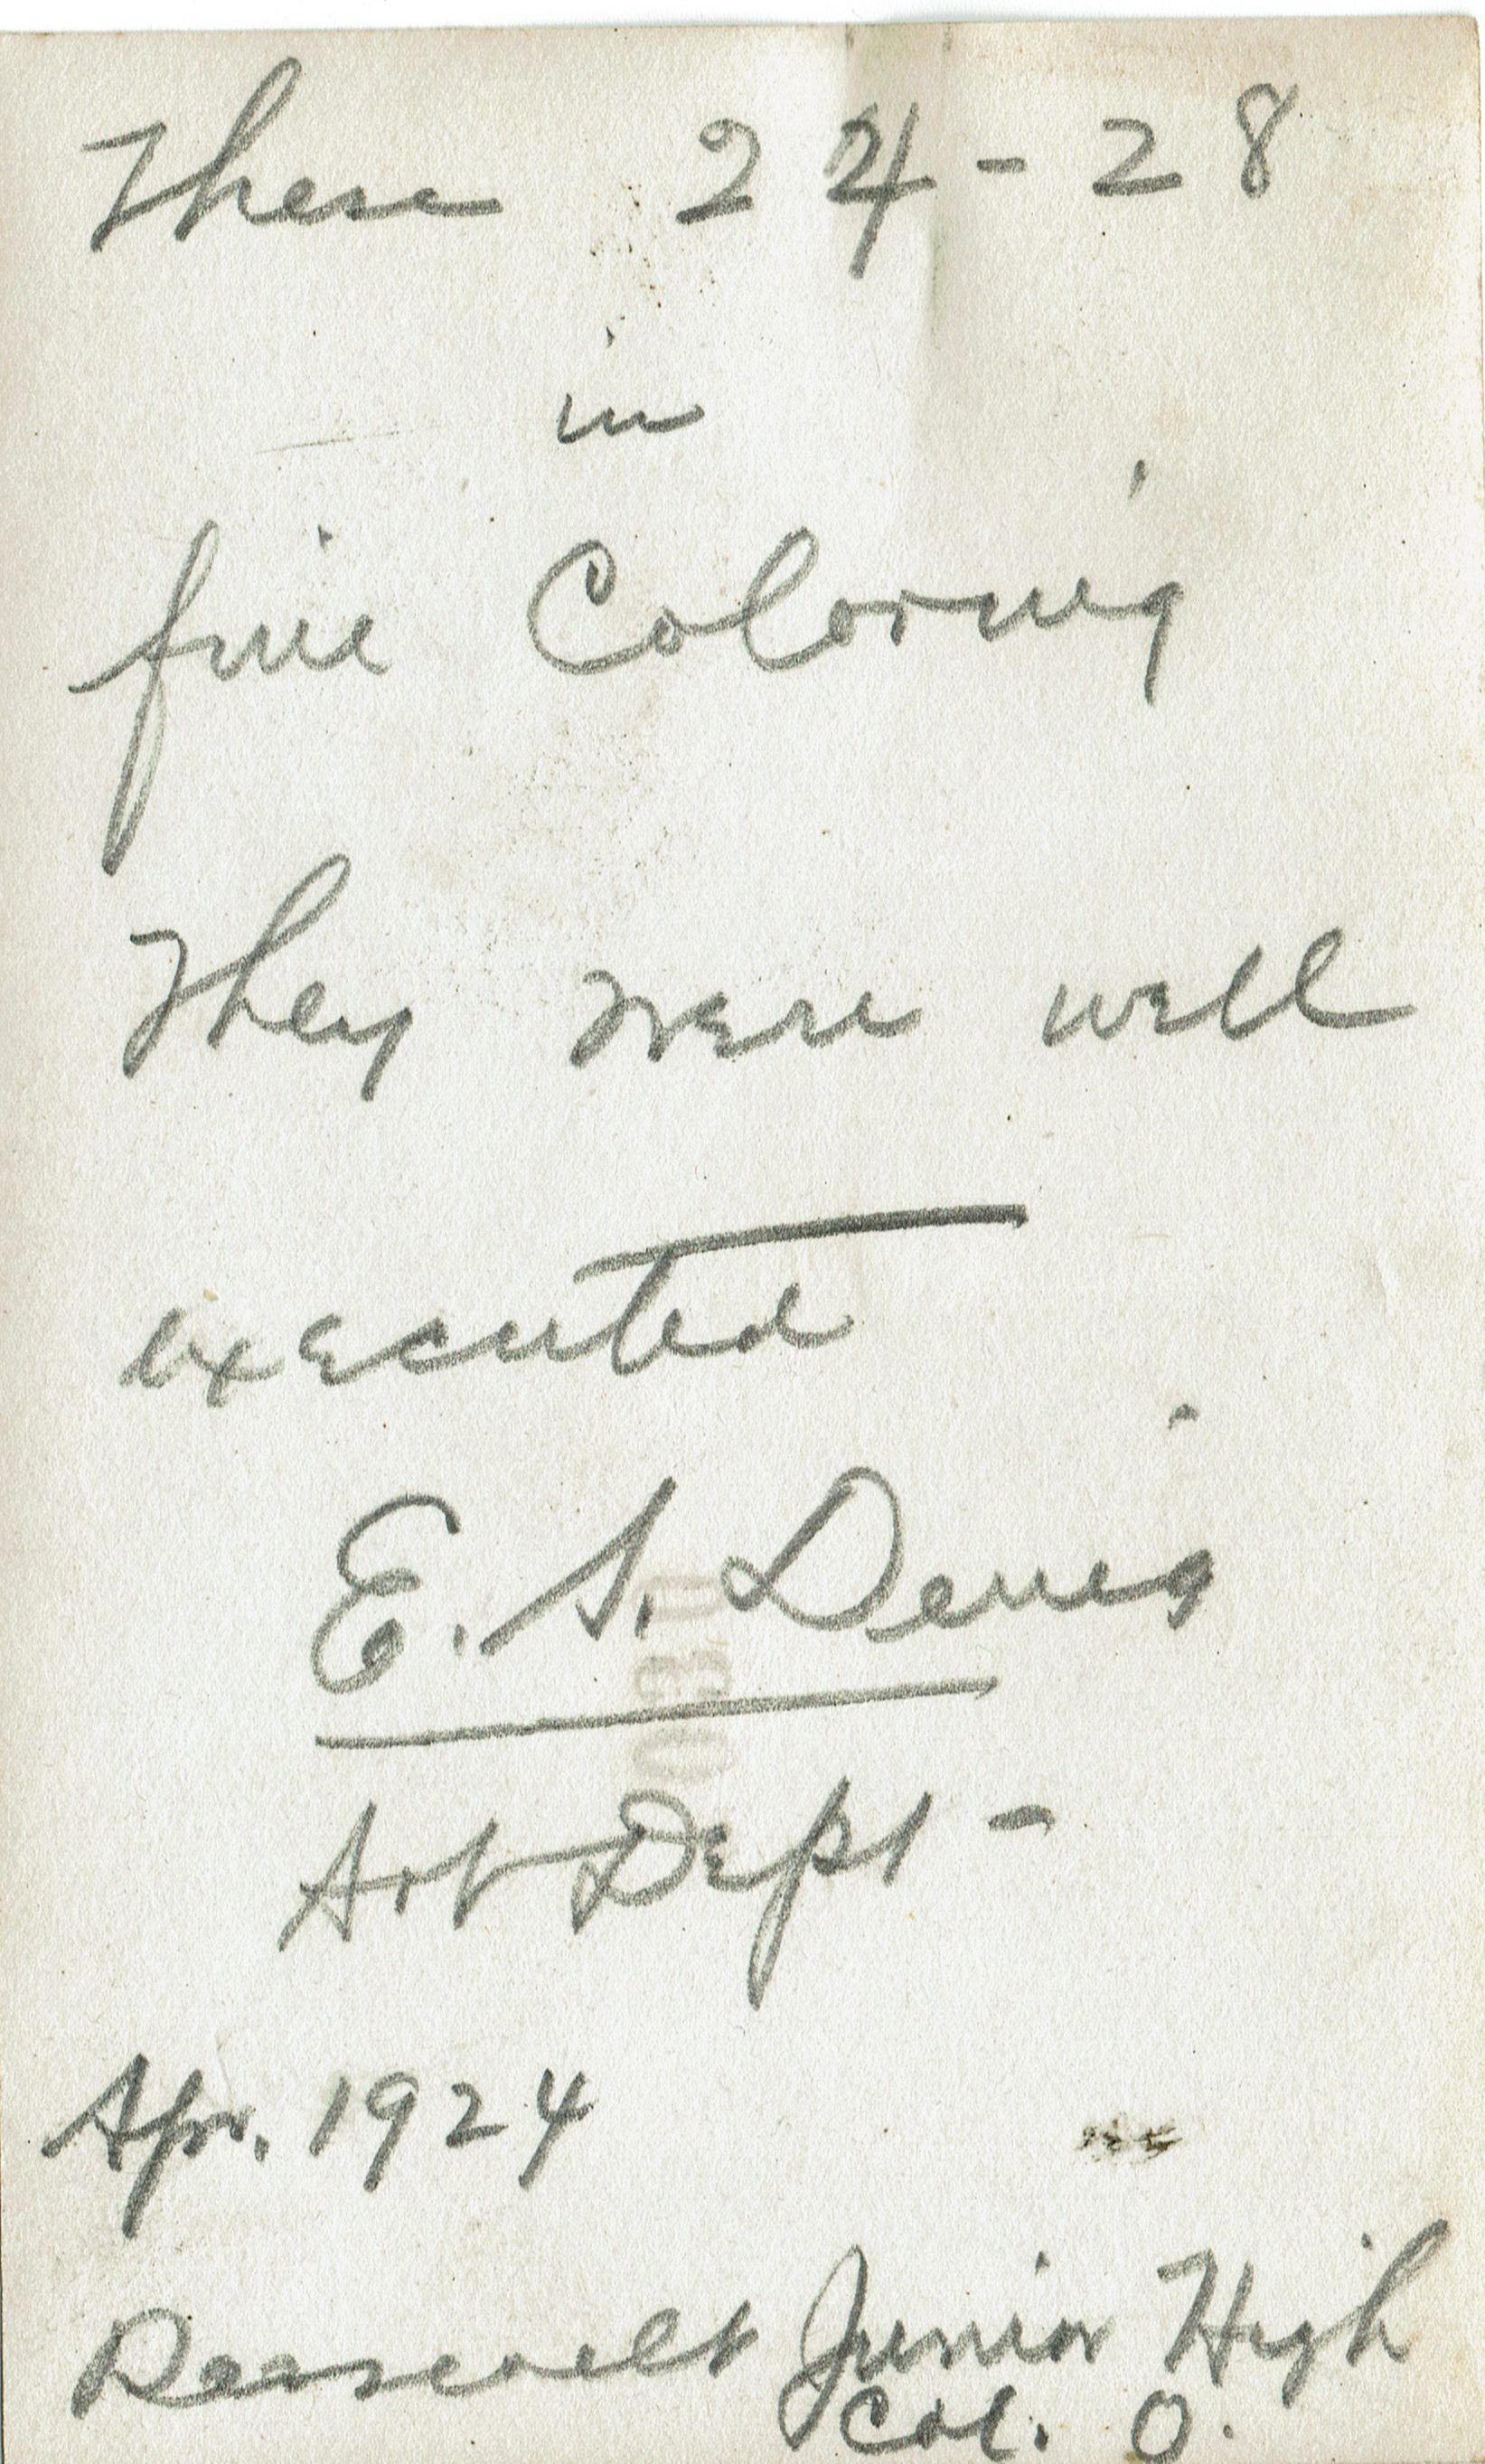 These 24 - 28
in
fine Coloring
They were well
executed
E. S.
Art Dept -
Apr. 1924
Roosevelt Junior High
Col. O.